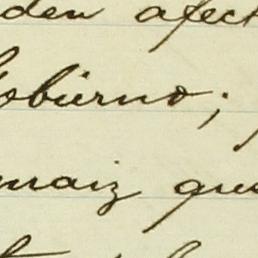 den afect
Gobierno;
maiz que